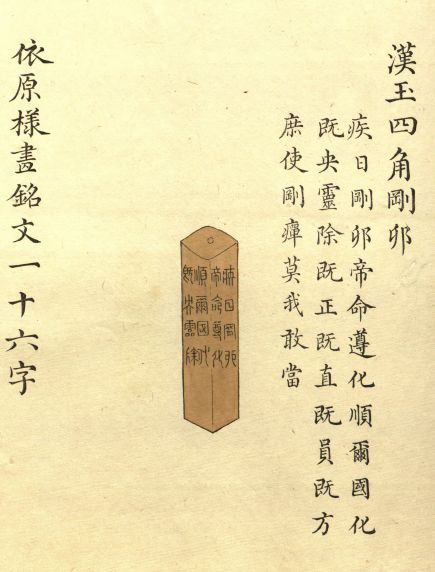 漢玉四角剛卯
疾日剛卯帝命遵化順爾國化
既央靈除既正既直既員既方
庶使剛癉莫我敢當
疾日岡卯
帝命尊化
順爾國化
既央靈除
依原樣畫銘文一十六字